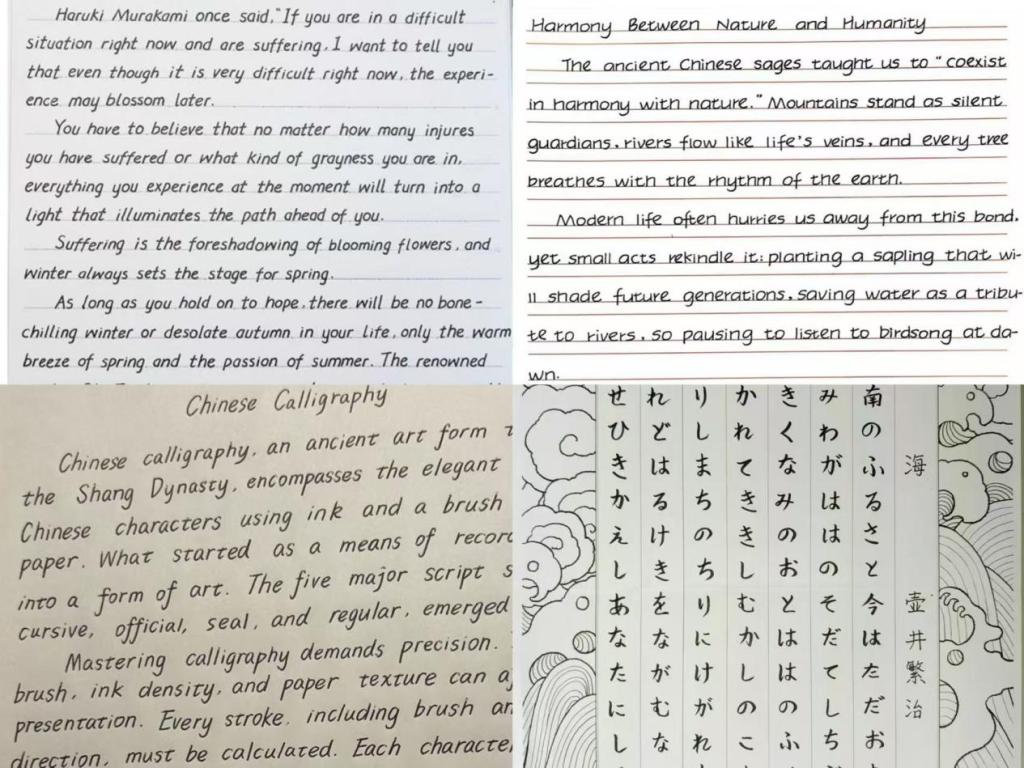 Haruki Murakami once said,"If you are in a difficult
situation right now and are suffering, I want to tell you
that even though it is very difficult right now, the experi-
ence may blossom later.
You have to believe that no matter how many injures
you have suffered or what kind of grayness you are in,
everything you experience at the moment will turn into a
light that illuminates the path ahead of you.
Suffering is the foreshadowing of blooming flowers, and
winter always sets the stage for spring.
As long as you hold on to hope, there will be no bone-
chilling winter or desolate autumn in your life, only the warm
breeze of spring and the passion of summer. The renowned
Harmony Between Nature and Humanity
The ancient Chinese sages taught us to "coexist
in harmony with nature." Mountains stand as silent
guardians, rivers flow like life's veins, and every tree
breathes with the rhythm of the earth.
Modern life often hurries us away from this bond.
yet small acts rekindle it: planting a sapling that wi-
ll shade future generations, saving water as a tribu-
te to rivers, so pausing to listen to birdsong at da-
wn.
Chinese Calligraphy
Chinese calligraphy, an ancient art form
the Shang Dynasty, encompasses the elegant
Chinese characters using ink and a brush
paper. What started as a means of recor
into a form of art. The five major script s
cursive, official, seal, and regular, emerged
Mastering calligraphy demands precision.
brush, ink density, and paper texture can a
presentation. Every stroke, including brush an
direction, must be calculated. Each characte
海 壺井繁治
南のふるさと今はただお
みわがははのそだてしち
きくなみのおとははのふ
かれてききしむかしのこ
りしまちのちりにけがれ
れどはるけきをながむな
せひきかえしあなたにし